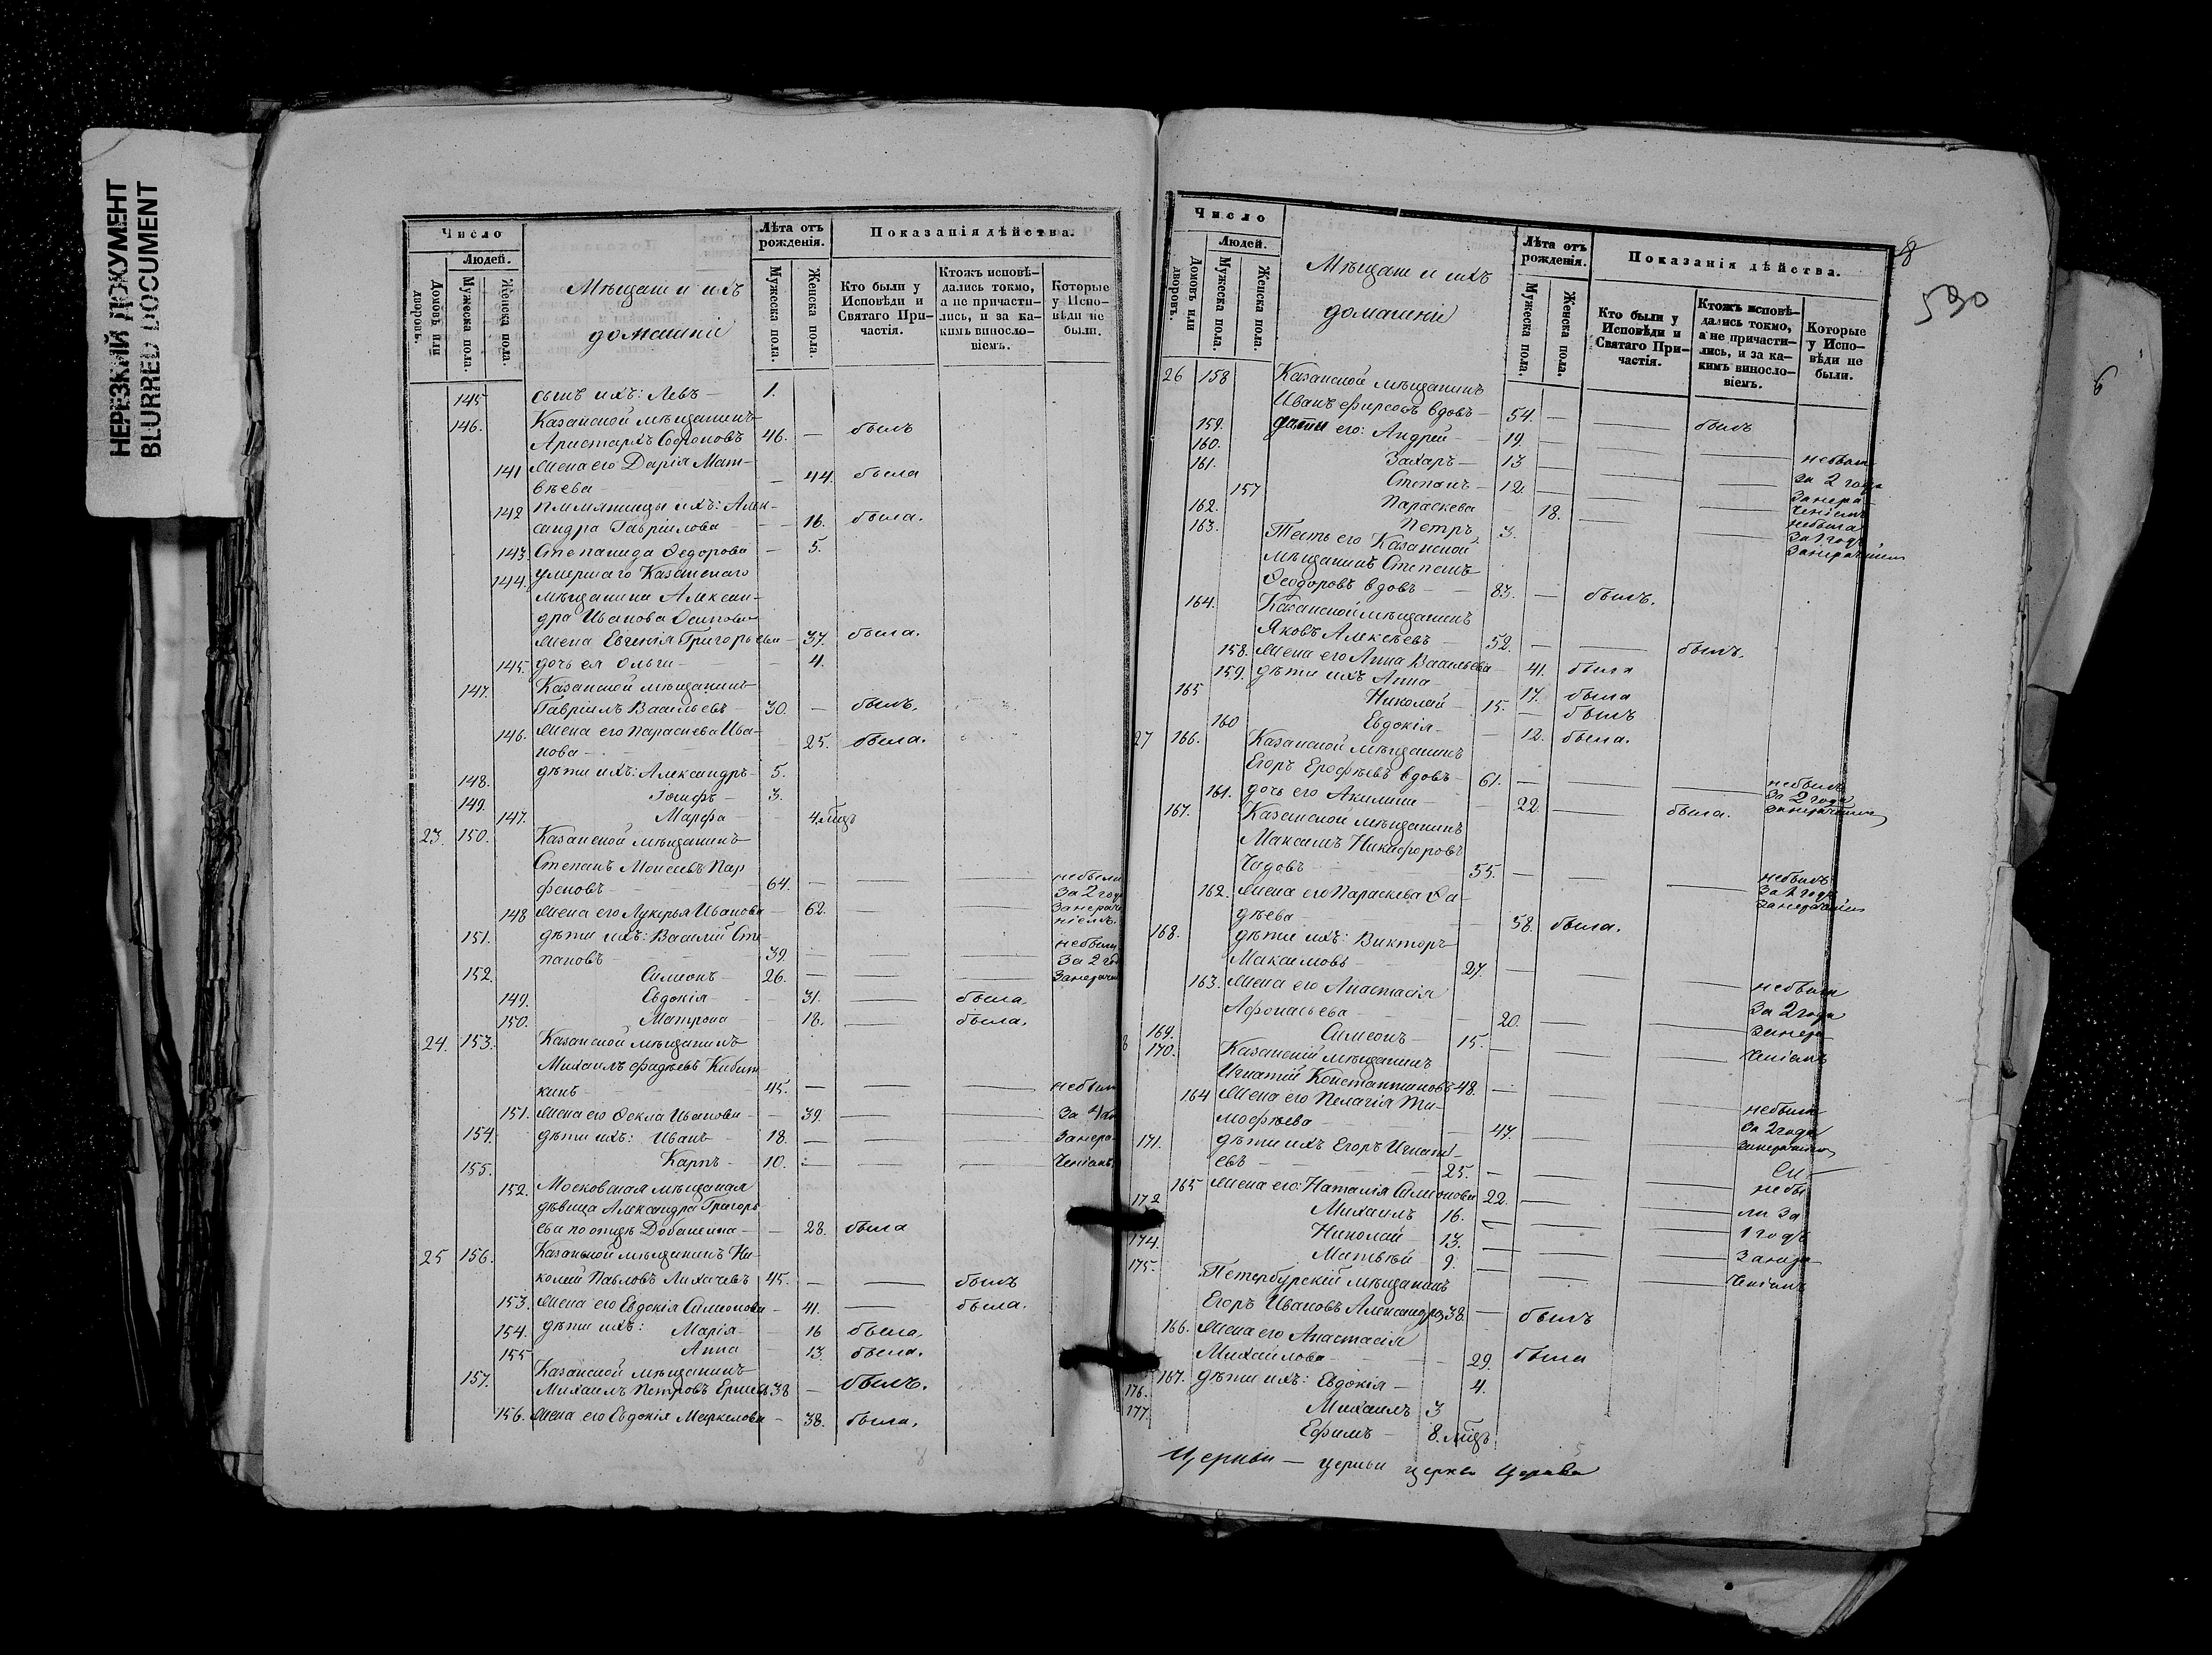 НЕРЕЗКИЙ ДОКУМЕНТ
BLURRED DOCUMENT
Число
Людей.
Домовъ или дворовъ.
Мужеска пола.
Женска пола.
Мѣщане и ихъ
домашніе
Лѣта отъ рожденія.
Мужеска пола.
Женска пола.
Показанія дѣйства.
Кто были у Исповѣди и Святаго Причастія.
Ктожъ исповѣдались токмо, а не причастились, и за какимъ винословіемъ.
Которые у Исповѣди не были.
145 сынъ ихъ: Левъ — 1.
146. Казанской мѣщанинъ
Аристархъ Софроновъ 46. — былъ
141 Жена его Дарія Мат-
вѣева — 44. была
142 племянницы ихъ: Алек-
сандра Гавріилова — 16. была.
143. Степанида Ѳедорова — 5.
144. умершаго Казанскаго
мѣщанина Алексан-
дра Иванова Осипова
жена Евгенія Григорьева — 37. была.
145. дочь ея Ольга — 4.
147. Казанской мѣщанинъ
Гавріилъ Васильевъ — 30. — былъ.
146. Жена его Параскева Ива-
нова — 25. была.
148. дѣти ихъ: Александръ — 5.
149. Іосифъ — 3.
147. Марфа — 4 мѣсц
23. 150. Казанской мѣщанинъ
Степанъ Моисеевъ Пар
феновъ — 64. — небыли
за 2 года
148 Жена его Лукерья Иванова — 62. — занераче
ніемъ.
151. дѣти ихъ: Василій Сте
пановъ — 39. — небыли
за 2 год
152. Симеонъ — 26. — занераче
149. Евдокія — 31. — была.
150. Матрона — 18. — была.
24. 153. Казанской мѣщанинъ
Михаилъ Фадѣевъ Кибит
кинъ — 45. — небыли
151. Жена его Ѳекла Иванова — 39. — за 4
154. дѣти ихъ: Иванъ — 18. — занера-
155. Карпъ — 10. — ченіемъ
152. Московская мѣщанская
дѣвица Александра Григорь
ева по отцѣ — 28. была
25 156. Казанской мѣщанинъ Ни-
колай Павловъ Лихачевъ 45. — былъ
153. Жена его Евдокія Симеонова — 41. — была.
154. дѣти ихъ: Марія — 16 была.
155 Анна — 13. была.
157. Казанской мѣщанинъ
Михаилъ Петровъ 38 — былъ.
156. Жена его Евдокія Маркелова — 38. была.
8
Число
Людей.
Домовъ или дворовъ.
Мужеска пола.
Женска пола.
Мѣщане и ихъ
домашніе
Лѣта отъ рожденія.
Мужеска пола.
Женска пола.
Показанія дѣйства.
Кто были у Исповѣди и Святаго Причастія.
Ктожъ исповѣдались токмо, а не причастились, и за какимъ винословіемъ.
Которые у Исповѣди не были.
8
530
6
26 158 Казанской мѣщанинъ
Иванъ Фирсовъ вдовъ — 54. — былъ
159. дѣти его: Андрей — 19. —
160. Захаръ — 13 — небыли
161. Степанъ — 12. — за 2 года
157 Параскева — 18. — занера
ченіемъ
162. Петръ 3. небыла
за 1 годъ
занераченіем
163. Тесть его Казанской
мѣщанинъ Степанъ
Ѳеодоровъ вдовъ — 83. — былъ.
164. Казанской мѣщанинъ
Яковъ Алексѣевъ — 52. — былъ.
158. Жена его Анна Васильева — 41. была
159. дѣти ихъ Анна — 17. была
165 Николай — 15. — былъ
160 Евдокія — 12. была.
27 166. Казанской мѣщанинъ
Егоръ Ерофѣевъ вдовъ — 61. — небылъ
за 2 года
занераченіем
161. дочь его Акилина — 22. — была.
167. Казанской мѣщанинъ
Максимъ Никифоровъ
Чадовъ — 55. — небылъ
за 1 годъ
занераченіем
162. Жена его Параскева Ѳа-
дѣева — 58. была.
168. дѣти ихъ: Викторъ
Максимовъ — 27. —
163. Жена его Анастасія небыли
Афонасьева — 20. — за 2 года
169. Симеонъ — 15. — занера
170. Казанскій мѣщанинъ ченіемъ
Игнатій Константиновъ 48. —
164 Жена его Пелагія Ти- небыли
мофѣева — 47. за 2 года
занераченіем
171. дѣти ихъ Егоръ Игнать-
евъ — 25. —
165 Жена его: Наталія Симонова 22. — небы
172 Михаилъ 16. — ли за
174. Николай — 13. — 1 годъ
175. Матвѣй — 9. — занера
Петербурскій мѣщанинъ ченіемъ
Егоръ Ивановъ Александро 38. — былъ
166. Жена его Анастасія
Михайлова — 29. была
167. дѣти ихъ: Евдокія — 4.
176. Михаилъ 3
177. Ефимъ — 8. мѣсц
церкви — церкви церкв